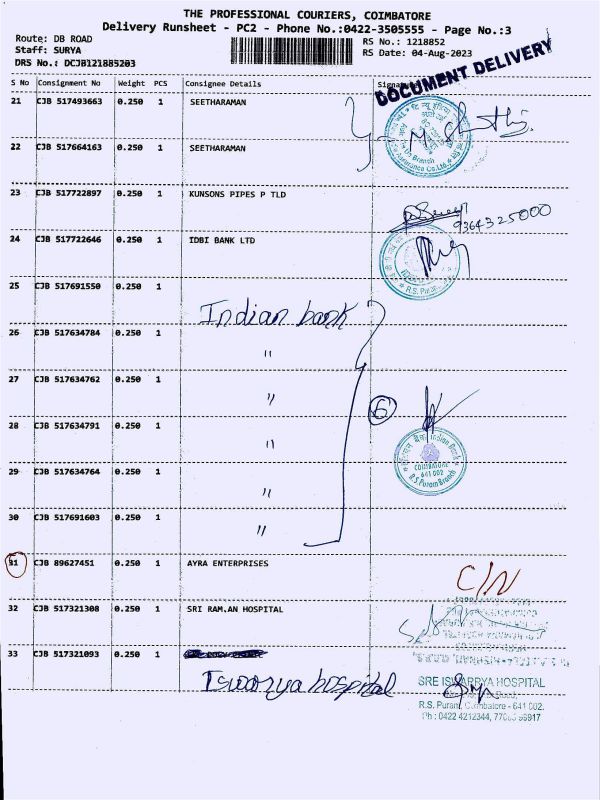 THE PROFESSIONAL COURIERS, COIMBATORE
Delivery Runsheet - PC2 - Phone No.:0422-3505555 - Page No.:3
Route: DB ROAD
Staff: SURYA
DRS No.: DCJB121885203
RS No.: 1218852
RS Date: 04-Aug-2023
DOCUMENT DELIVERY
S No Consignment No Weight PCS Consignee Details
21 CJB 517493663 0.250 1 SEETHARAMAN
22 CJB 517664163 0.250 1 SEETHARAMAN
23 CJB 517722897 0.250 1 KUNSONS PIPES P TLD
9364325000
24 CJB 517722646 0.250 1 IDBI BANK LTD
25 CJB 517691550 0.250 1 Indian bank
26 CJB 517634784 0.250 1 "
27 CJB 517634762 0.250 1 "
6
28 CJB 517634791 0.250 1 "
Indian Bank
COIMBATORE
641 002
R.S.Puram Branch
29 CJB 517634764 0.250 1 "
30 CJB 517691603 0.250 1 "
31 CJB 89627451 0.250 1 AYRA ENTERPRISES
C/N
32 CJB 517321308 0.250 1 SRI RAM.AN HOSPITAL
33 CJB 517321093 0.250 1
Iswarya hospital
SRE ISWARRYA HOSPITAL
R.S. Puram, Coimbatore - 641 002.
Ph : 0422 4212344,